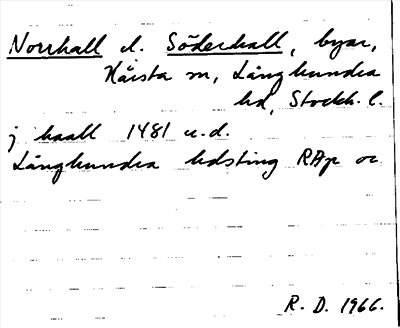 Norrhall el. Söderhall, byar,
Närtuna sn, Långhundra
hd, Stockh. l.
j haall 1481 u.d.
Långhundra hdsting RAp or
R. D. 1966.